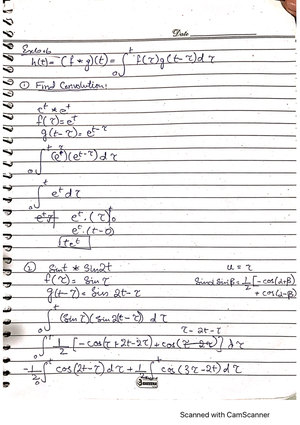 Date
Ex 10.6
h(t) = (f * g)(t) = ∫₀ᵗ f(τ) g(t-τ) dτ
① Find Convolution:
eᵗ * eᵗ
f(τ) = eᵗ
g(t-τ) = e^(t-τ)
∫₀ᵗ (e^τ)(e^(t-τ)) dτ
∫₀ᵗ eᵗ dτ
eᵗ . (τ)|₀ᵗ
eᵗ . (t-0)
teᵗ
② Sint * Sin2t
u = τ
f(τ) = Sin τ
Sinα Sinβ = 1/2 [-cos(α+β)
g(t-τ) = Sin 2t-τ
+ cos(α-β)]
∫₀ᵗ (Sin τ)(Sin 2(t-τ)) dτ
τ - 2t - τ
∫₀ᵗ 1/2 [-cos(τ+2t-2τ) + cos(τ-2t-2τ)] dτ
-1/2 ∫₀ᵗ cos(2t-τ) dτ + 1/2 ∫₀ᵗ cos(3τ-2t) dτ
Scanned with CamScanner